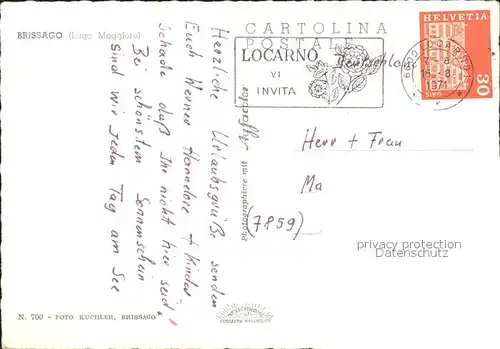 BRISSAGO (Lago Maggiore)
Herzliche Urlaubsgrüße senden
Euch Werner Hannelore + Kinder
Schade daß Ihr nicht hier seid!
Bei schönstem Sonnenschein
sind wir jeden Tag am See
N. 700 - FOTO KUCHLER, BRISSAGO
CARTOLINA
POSTALE
LOCARNO
VI
INVITA
Deutschland
6600 LOCARNO 1
16.8.
1971
HELVETIA
30
Herr + Frau
Ma
(7859)
privacy protection
watermark